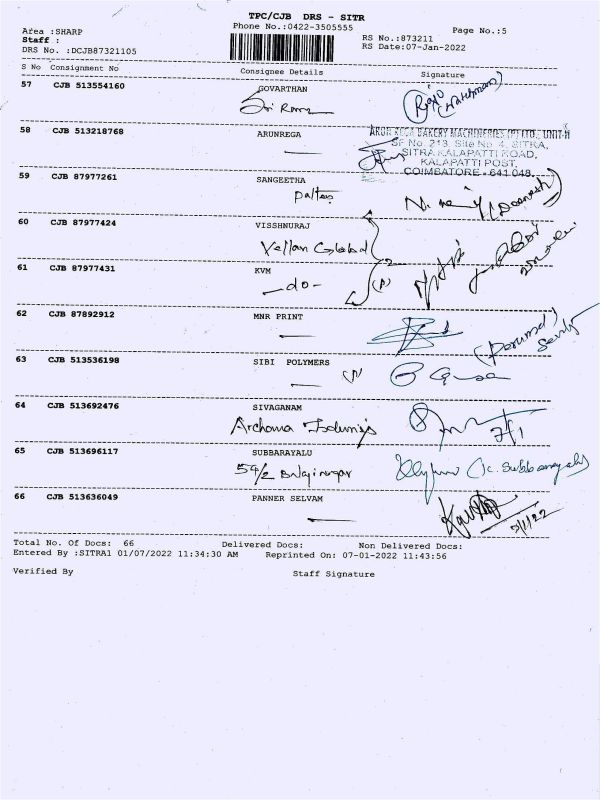 TPC/CJB DRS - SITR
Phone No.:0422-3505555
Area :SHARP
Page No.:5
Staff :
RS No.:873211
DRS No. :DCJB87321105
RS Date:07-Jan-2022
S No Consignment No Consignee Details Signature
57 CJB 513554160 GOVARTHAN
Sri Rama
58 CJB 513218768 ARUNREGA
BAKERY MACHINERIES (P) LTD., UNIT-II
SF No. 213, Site No. 4, SITRA,
SITRA KALAPATTI ROAD,
KALAPATTI POST,
COIMBATORE - 641 048.
59 CJB 87977261 SANGEETHA
60 CJB 87977424 VISSHNURAJ
61 CJB 87977431 KVM
-do-
62 CJB 87892912 MNR PRINT
63 CJB 513536198 SIBI POLYMERS
64 CJB 513692476 SIVAGANAM
7/1
65 CJB 513696117 SUBBARAYALU
(c. Subbarayalu)
66 CJB 513636049 PANNER SELVAM
Total No. Of Docs: 66 Delivered Docs: Non Delivered Docs:
Entered By :SITRA1 01/07/2022 11:34:30 AM Reprinted On: 07-01-2022 11:43:56
Verified By Staff Signature